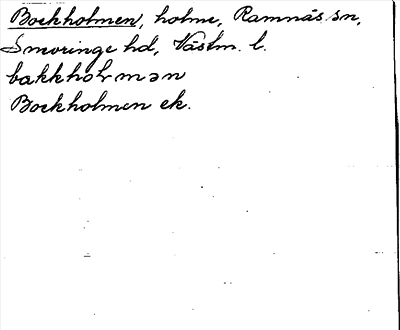 Bockholmen, holme, Ramnäs sn,
Snevringe hd, Västm. l.
bakkholmən
Bockholmen ek.